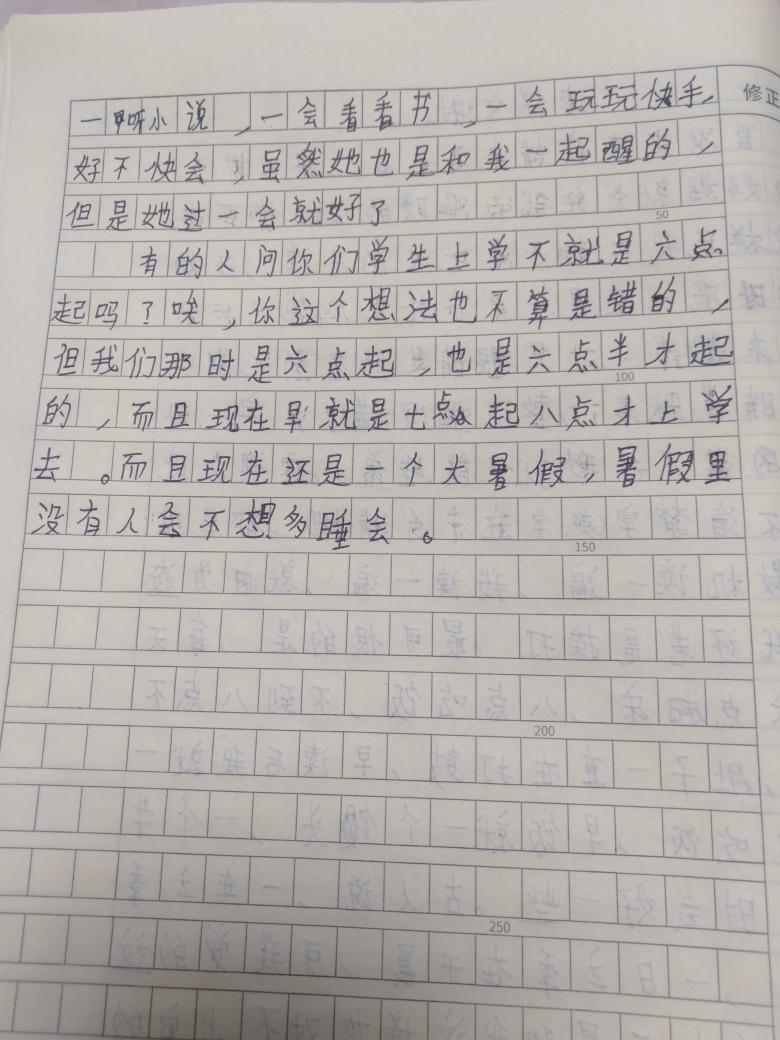 一 小说，一会看看书，一会玩玩快手，
修正
好不快会，虽然她也是和我一起醒的，
但是她过一会就好了
50
有的人问你们学生上学不就是六点
起吗？唉，你这个想法也不算是错的，
但我们那时是六点起，也是六点半才起
100
的，而且现在早就是七点 起八点才上学
去。而且现在还是一个大暑假，暑假里
没有人会不想多睡会。
150
200
250